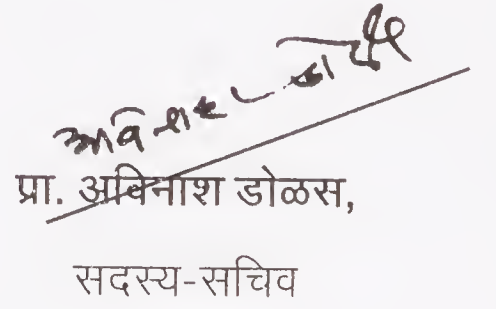 अविनाश डोळस
प्रा. अविनाश डोळस,
सदस्य-सचिव